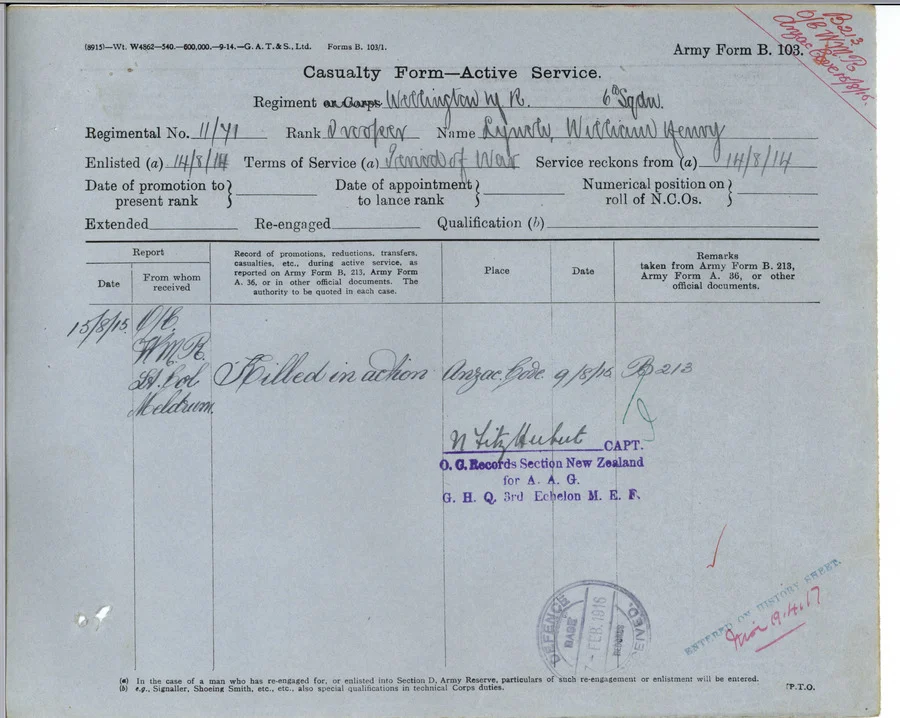 (8915)—Wt. W4862—540.—600,000.—9-14.—G. A. T. & S., Ltd. Forms B. 103/1.
Army Form B. 103.
B 213
O/C W.M.R.
Anzac Cove 15/8/15.
Casualty Form—Active Service.
Regiment or Corps Wellington M. R. 6th Sqdn.
Regimental No. 11/71 Rank Trooper Name Lynch, William Henry
Enlisted (a) 14/8/14 Terms of Service (a) Period of War Service reckons from (a) 14/8/14
Date of promotion to present rank } Date of appointment to lance rank } Numerical position on roll of N.C.Os. }
Extended Re-engaged Qualification (b)
Report
Date
From whom received
Record of promotions, reductions, transfers,
casualties, etc., during active service, as
reported on Army Form B. 213, Army Form
A. 36, or in other official documents. The
authority to be quoted in each case.
Place
Date
Remarks
taken from Army Form B. 213,
Army Form A. 36, or other
official documents.
15/8/15. O/C.
W.M.R.
Lt. Col
Meldrum.
Killed in action Anzac Cove. 9/8/15. B 213
N Fitz Herbert CAPT.
O. C. Records Section New Zealand
for A. A. G.
G. H. Q. 3rd Echelon M. E. F.
DEFENCE
BASE
7 - FEB. 1916
RECORDS
ENTERED ON HISTORY SHEET.
19.4.17
(a) In the case of a man who has re-engaged for, or enlisted into Section D, Army Reserve, particulars of such re-engagement or enlistment will be entered.
(b) e.g., Signaller, Shoeing Smith, etc., etc., also special qualifications in technical Corps duties.
P.T.O.